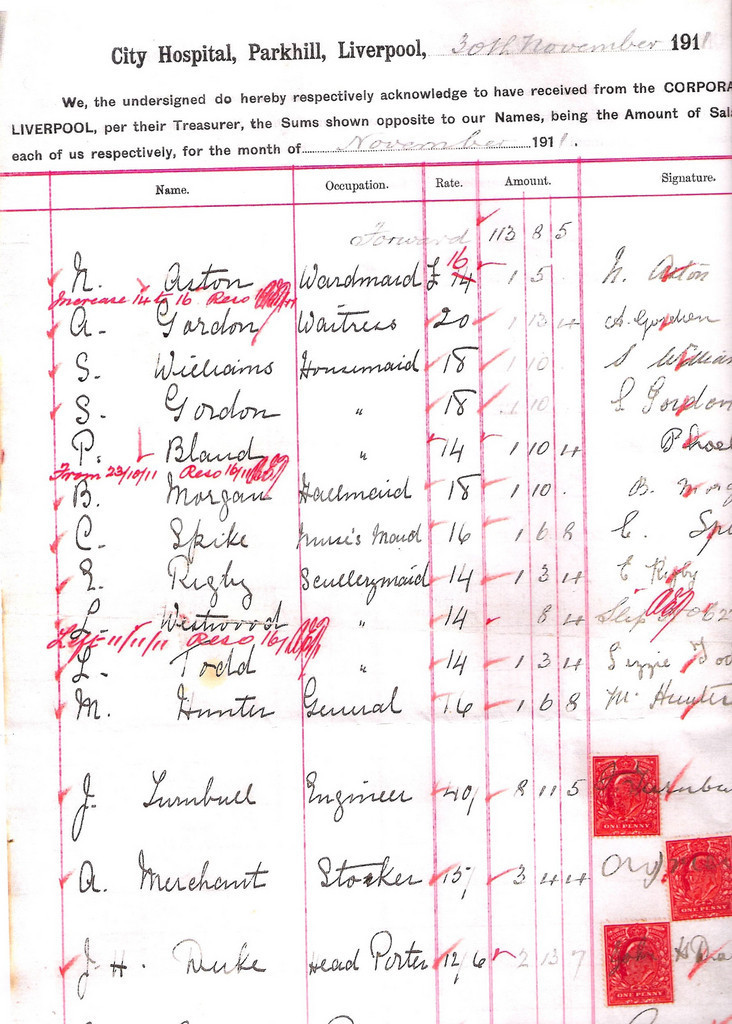 City Hospital, Parkhill, Liverpool, 30th November 1911
We, the undersigned do hereby respectively acknowledge to have received from the CORPORA
LIVERPOOL, per their Treasurer, the Sums shown opposite to our Names, being the Amount of Sal
each of us respectively, for the month of November 1911.
Name. Occupation. Rate. Amount. Signature.
Forward 113 8 5
N. Aston Wardmaid £ 14 16 1 5 . N. Aston
Increase 14 to 16 Reso
A. Gordon Waitress 20 1 13 4 A. Gordon
S. Williams Housemaid 18 1 10 . S William
S. Gordon " 18 1 10 S Gordon
P. Bland " 14 1 10 4 P
From 23/10/11 Reso 16/11
B. Morgan Hallmaid 18 1 10 . B. Morg
C. Spike Nurse's Maid 16 1 6 8 C. Spi
E. Rigby Scullerymaid 14 1 3 4 E Rigby
L. Westwood " 14 8 4 Slip
Left 11/11/11 Reso 16/
L. Todd " 14 1 3 4 Lizzie Tod
M. Hunter General 16 1 6 8 M. Hunter
J. Turnbull Engineer 40/ 8 11 5 J Turnbu
ONE PENNY
A. Merchant Stoker 15/ 3 4 4
ONE PENNY
J. H. Duke Head Porter 12/6 2 13 7 John H Du
ONE PENNY